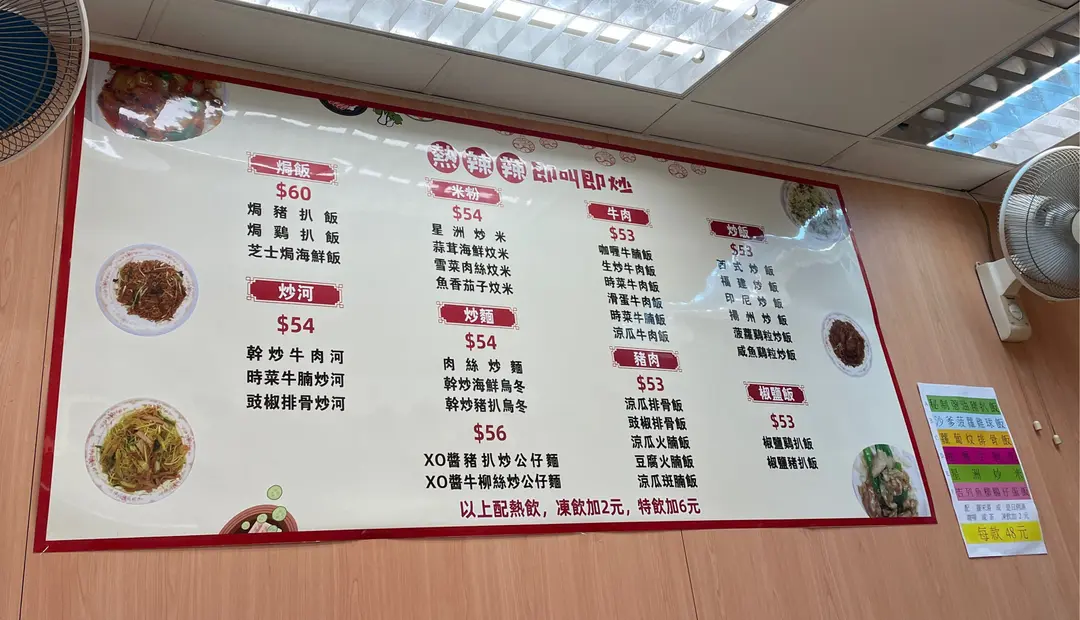 熱辣辣即叫即炒
焗飯
$60
焗豬扒飯
焗鷄扒飯
芝士焗海鮮飯
炒河
$54
幹炒牛肉河
時菜牛腩炒河
豉椒排骨炒河
米粉
$54
星洲炒米
蒜茸海鮮炆米
雪菜肉絲炆米
魚香茄子炆米
炒麵
$54
肉絲炒麵
幹炒海鮮烏冬
幹炒豬扒烏冬
$56
XO醬豬扒炒公仔麵
XO醬牛柳絲炒公仔麵
牛肉
$53
咖喱牛腩飯
生炒牛肉飯
時菜牛肉飯
滑蛋牛肉飯
時菜牛腩飯
涼瓜牛肉飯
豬肉
$53
涼瓜排骨飯
豉椒排骨飯
涼瓜火腩飯
豆腐火腩飯
涼瓜斑腩飯
炒飯
$53
西式炒飯
福建炒飯
印尼炒飯
揚州炒飯
菠蘿鷄粒炒飯
咸魚鷄粒炒飯
椒鹽飯
$53
椒鹽鷄扒飯
椒鹽豬扒飯
以上配熱飲，凍飲加2元，特飲加6元
沙爹菠蘿雞球飯
星洲炒米
每款 48元